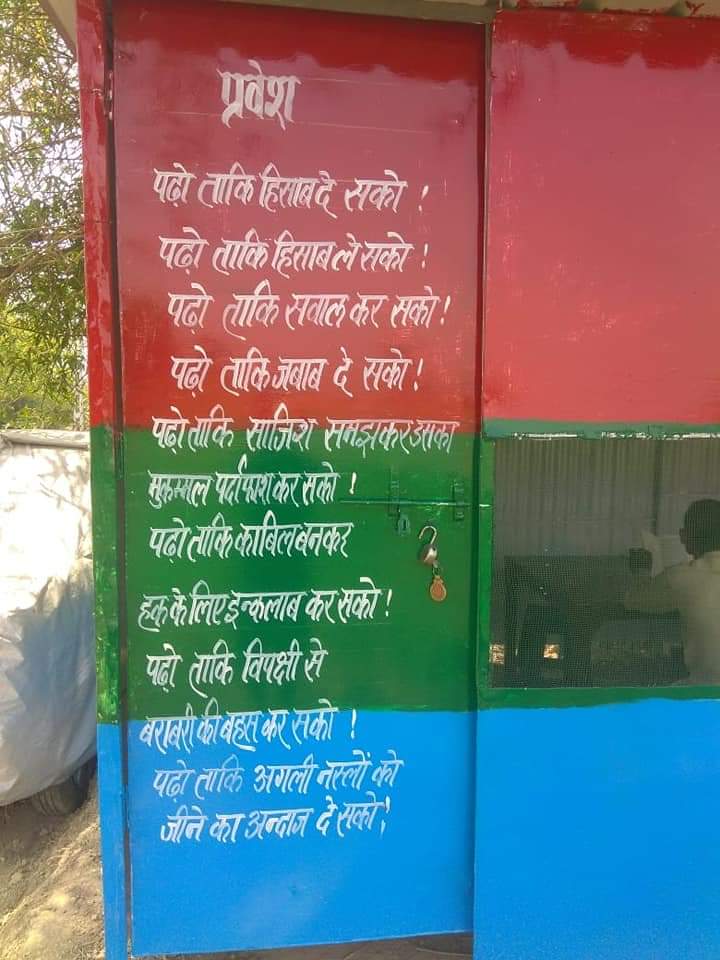 प्रवेश
पढ़ो ताकि हिसाब दे सको !
पढ़ो ताकि हिसाब ले सको !
पढ़ो ताकि सवाल कर सको !
पढ़ो ताकि जबाब दे सको !
पढ़ो ताकि साजिश समझकर उसका
मुकम्मल पर्दाफाश कर सको !
पढ़ो ताकि काबिल बनकर
हक के लिए इन्कलाब कर सको !
पढ़ो ताकि विपक्षी से
बराबरी की बहस कर सको !
पढ़ो ताकि अगली नस्लों को
जीने का अन्दाज दे सको !